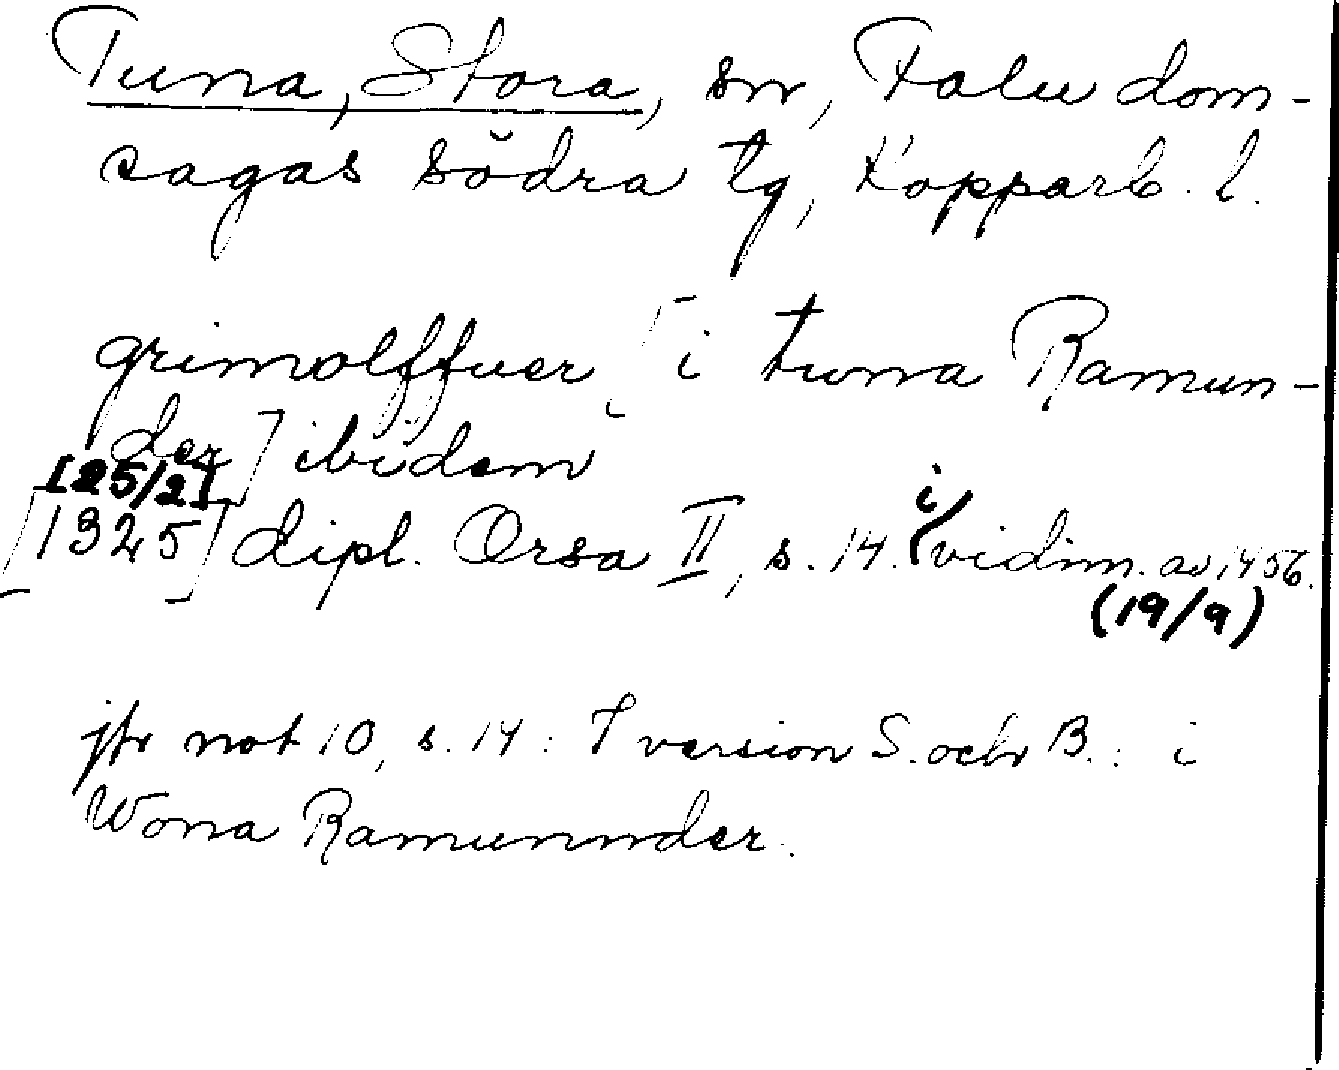 Tuna, Stora, sn, Falu dom-
sagas södra tg, Kopparb. l.
grimolffuer [i tuna Ramun-
der] ibidem
[25/2]
[1325] dipl. Orsa II, s. 14. i vidim. av 1456.
(19/9)
jfr not 10, s. 14: I version S. och B.: i
Wona Ramunnder.